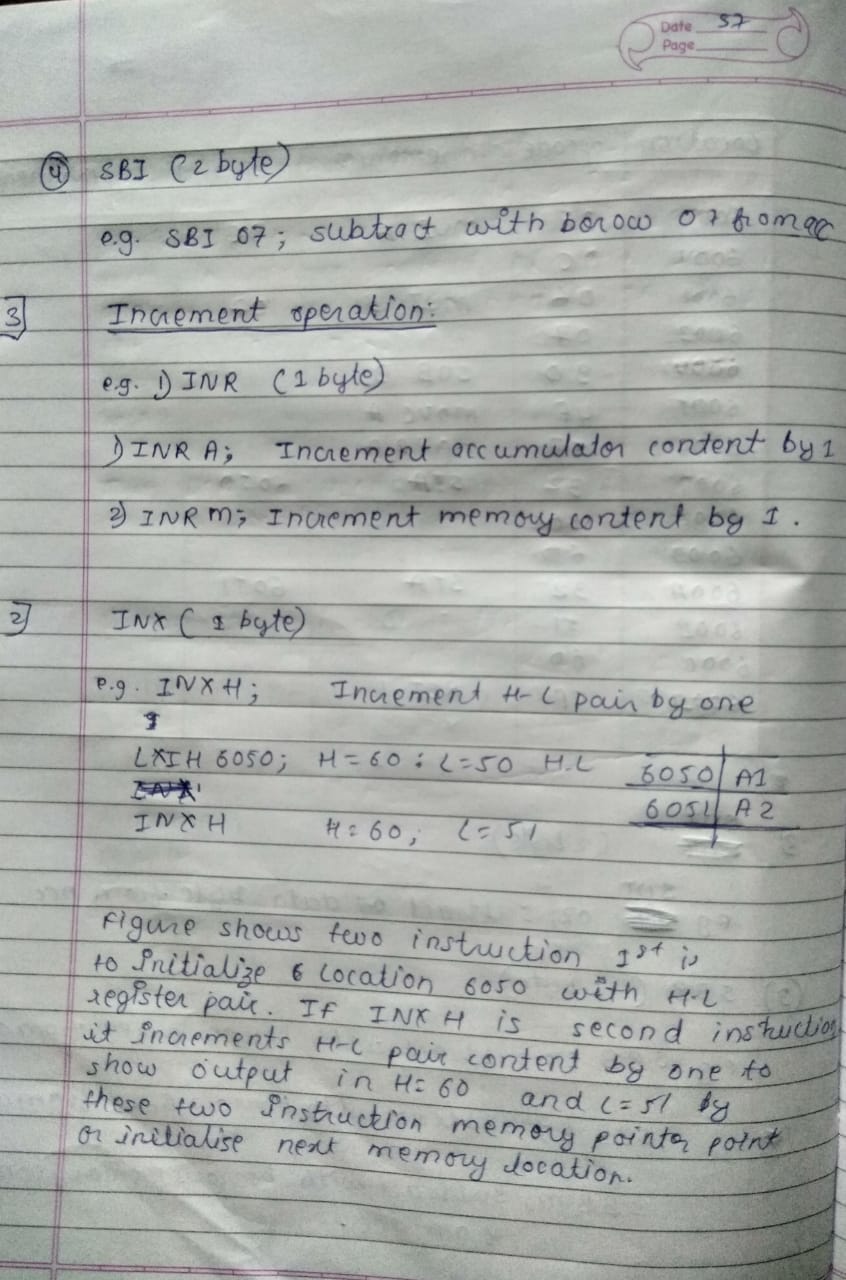 Date 57
Page
④ SBI (2 byte)
e.g. SBI 07; subtract with borow 07 from acc
3] Increment operation:
e.g. 1) INR (1 byte)
1) INR A; Increment accumulator content by 1
2) INR M; Increment memory content by 1.
2] INX (1 byte)
e.g. INX H; Increment H-L pair by one
LXI H 6050; H = 60 : L = 50 H.L 6050 A1
6051 A2
INX H H = 60; L = 51
Figure shows two instruction 1st is
to initialize 6 location 6050 with H-L
register pair. If INX H is second instruction
it increments H-L pair content by one to
show output in H= 60 and L = 51 by
these two instruction memory pointer point
or initialise next memory location.